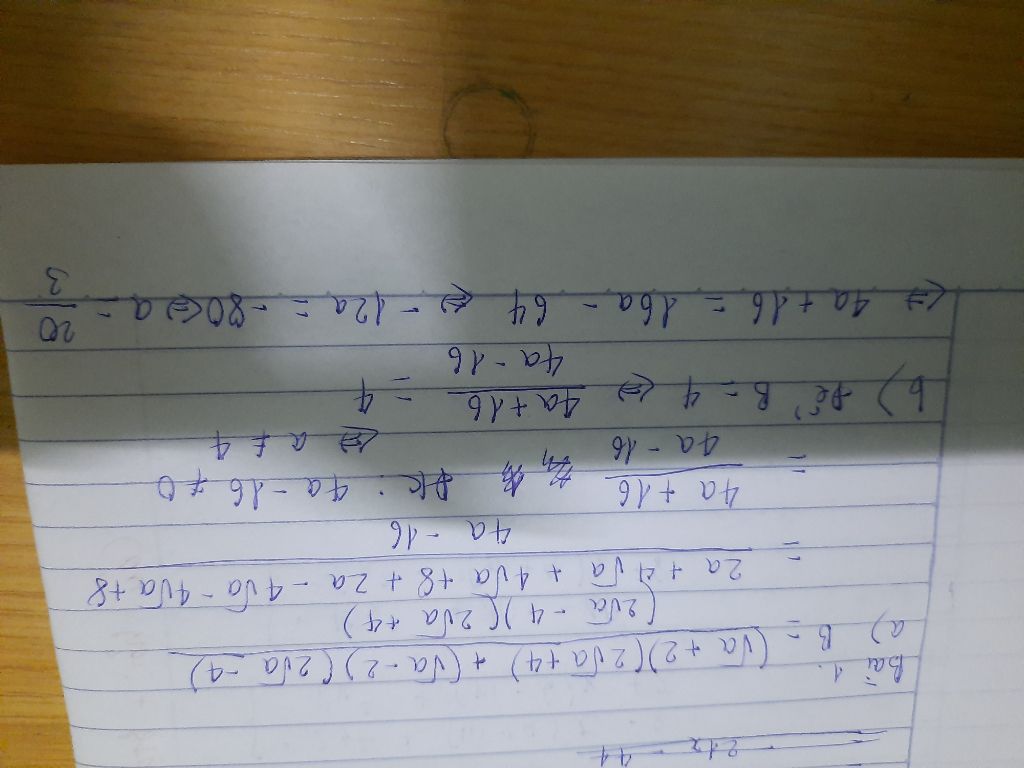 21x - 44
Bài 1.
a) B = (√a + 2)(2√a + 4) + (√a - 2)(2√a - 4) / (2√a - 4)(2√a + 4)
= 2a + 4√a + 4√a + 8 + 2a - 4√a - 4√a + 8 / 4a - 16
= 4a + 16 / 4a - 16 ĐK : 4a - 16 ≠ 0
⇔ a ≠ 4
b) Để B = 4 ⇔ 4a + 16 / 4a - 16 = 4
⇔ 4a + 16 = 16a - 64 ⇔ -12a = -80 ⇔ a = 20 / 3